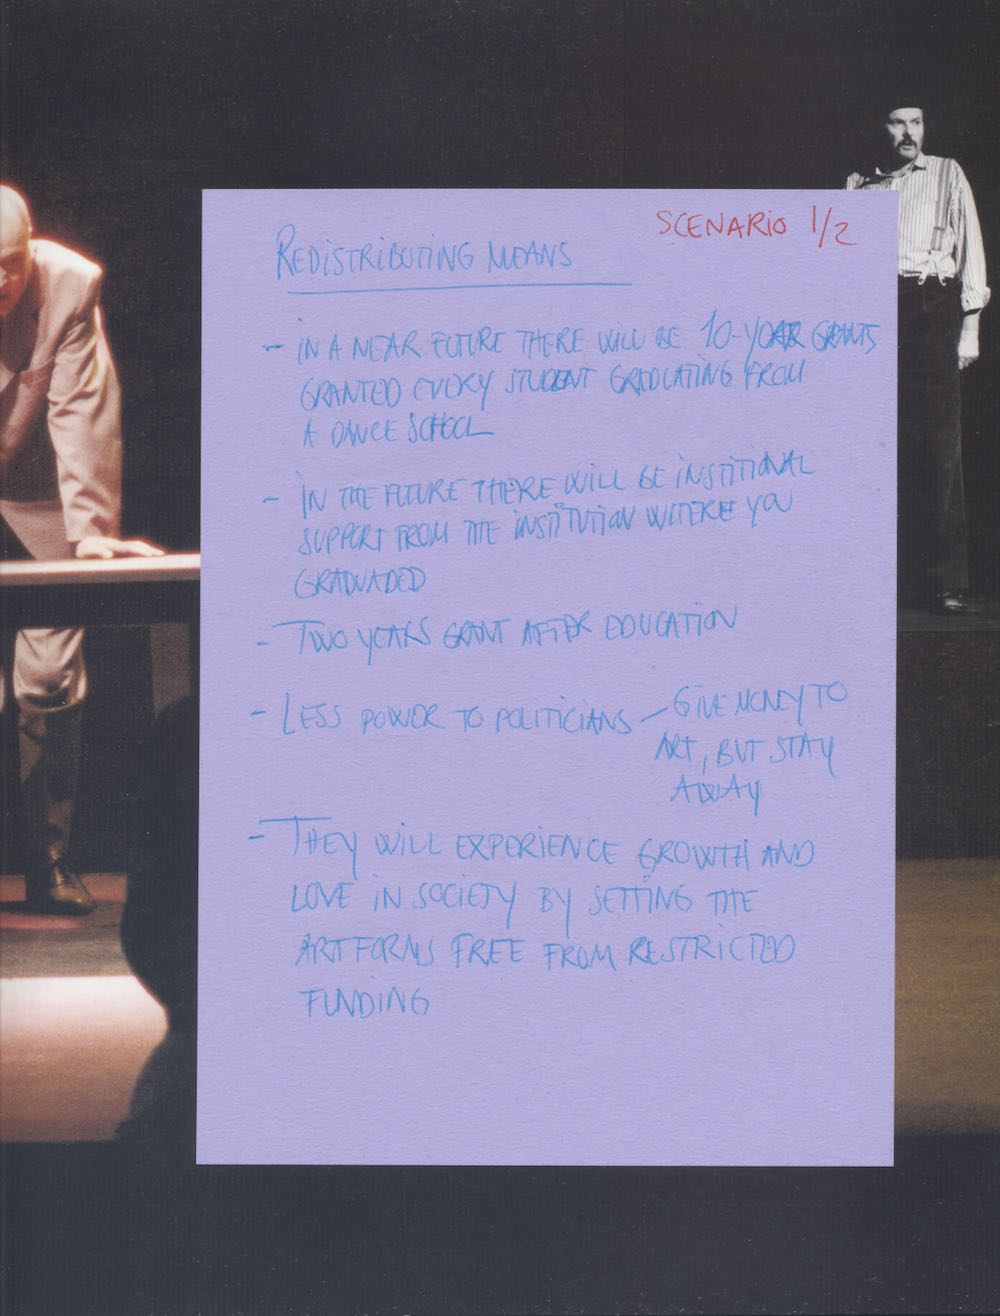 SCENARIO 1/2
REDISTRIBUTING MEANS
- IN A NEAR FUTURE THERE WILL BE 10-YEAR GRANTS
GRANTED EVERY STUDENT GRADUATING FROM
A DANCE SCHOOL
- IN THE FUTURE THERE WILL BE INSTITIONAL
SUPPORT FROM THE INSTITUTION WHERE YOU
GRADUADED
- TWO YEARS GRANT AFTER EDUCATION
- LESS POWER TO POLITICIANS - GIVE MONEY TO
ART, BUT STAY
AWAY
- THEY WILL EXPERIENCE GROWTH AND
LOVE IN SOCIETY BY SETTING THE
ARTFORMS FREE FROM RESTRICTED
FUNDING